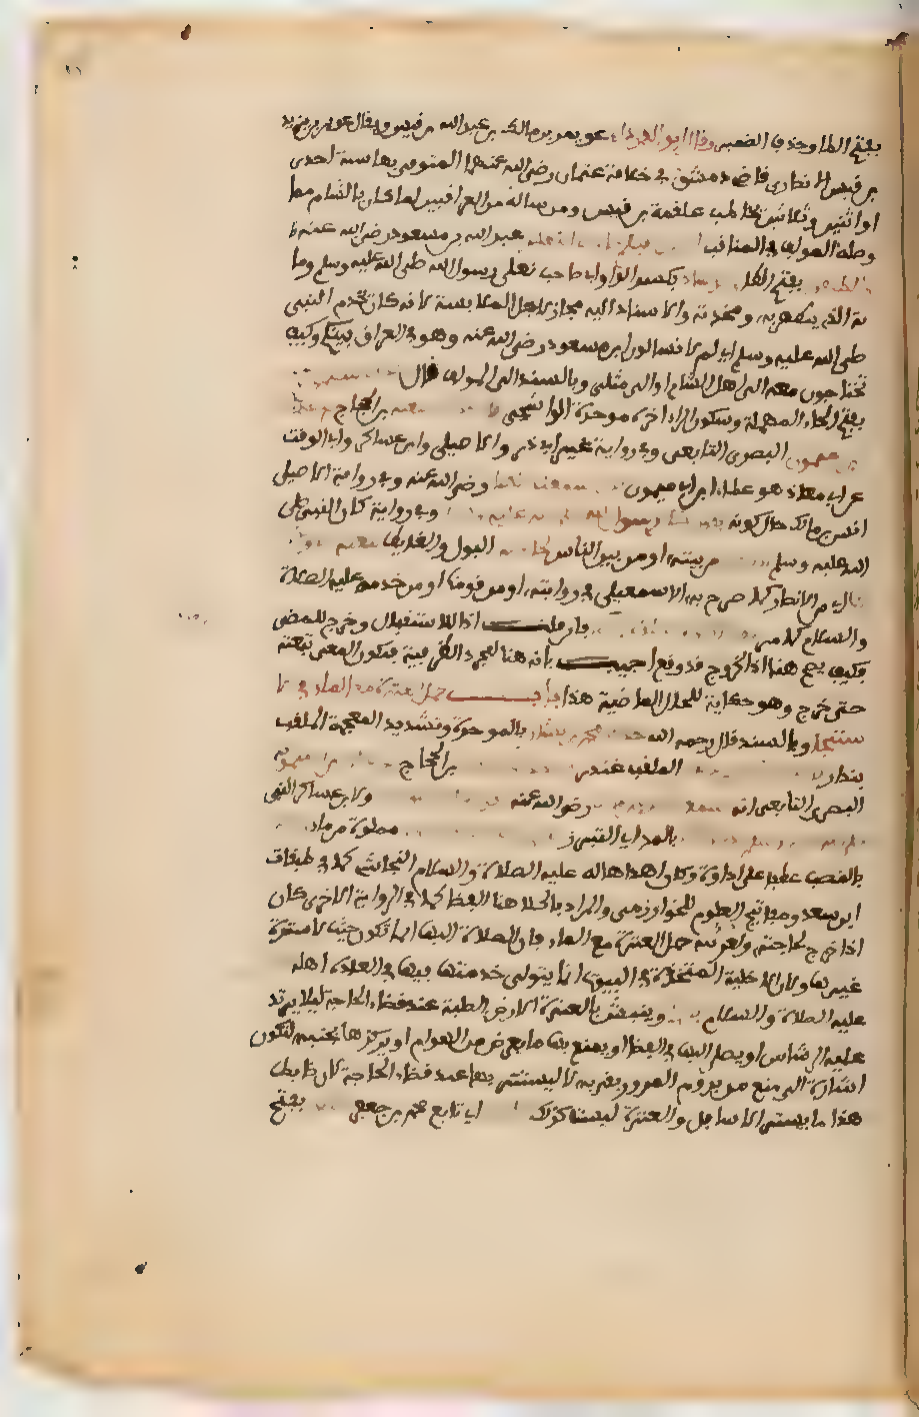 بفتح الطاء وحذف الضمير وقال ابو الدرداء عويمر بن مالك بن عبد الله بن قيس ويقال عويمر بن يزيد
بن قيس الانصاري قاضي دمشق في خلافة عثمان رضي الله عنهما المتوفى بها سنة احدى
او اثنتين وثلاثين يخاطب علقمة بن قيس ومن سأله من العراقيين لما كان بالشام مما
وصله المولف في المناقب عبد الله بن مسعود رضي الله عنه
بفتح الطاء بكسر الواو اي صاحب نعلي رسول الله صلى الله عليه وسلم وما
ئه الذي يتطهر به ومخدته والاسناد اليه مجاز لاجل الملابسة لانه كان يخدم النبي
صلى الله عليه وسلم اي لم لا تسالون ابن مسعود رضي الله عنه وهو في العراق بينكم وكيف
تحتاجون معه الى اهل الشام او الى مثلي وبالسند الى المولف قال
بفتح الحاء المهملة وسكون الراء اخره موحدة الواشحي بن الحجاج
ميمون البصري التابعي وفي رواية غير ابي ذر والاصيلي وابن عساكر وابي الوقت
عن ابي معاذ هو عطاء بن ابي ميمون رضي الله عنه وفي رواية الاصيلي
انس بن مالك حال كونه رسول الله وفي رواية كان النبي صلى
الله عليه وسلم من بيته او من بين الناس البول والغائط
من الانصار كما صرح به الاسماعيلي في روايته او من قومنا او من خدمه عليه الصلاة
والسلام كما مر فان قلت اذا للاستقبال وخرج للمضي
فكيف يصح هنا اذ الخروج قد وقع اجيب بان هنا لمجرد الظرفية فيكون المعنى تبعته
حين خرج وهو حكاية للحال الماضية هذا باب حمل العنزة مع الماء في الا
ستنجاء وبالسند قال رحمه الله بشار بالموحدة وتشديد المعجمة الملقب
بندار الملقب غندر بن الحجاج
البصري التابعي انه سمع رضي الله عنه ولابن عساكر النبي
بالمد اي التبرز مملوءة من ماء
بالنصب عطفا على اداوة وكان اهداها له عليه الصلاة والسلام النجاشي كما في طبقات
ابن سعد ومفاتيح العلوم للخوارزمي والمراد بالخلاء هنا الفضاء كما في الرواية الاخرى كان
اذا خرج لحاجته ولقرينة حمل العنزة مع الماء فان الصلاة اليها انما تكون حيث لا سترة
غيرها ولان الاخلية المتخذة في البيوت انما يتولى خدمته فيها في العادة اهله
عليه الصلاة والسلام وينبش بالعنزة الارض الصلبة عند قضاء الحاجة ليلا يرتد
عليه الرشاش او يصلي اليها في الفضاء او يمنع بها ما يعرض من الهوام او يركزها بجنبه لتكون
اشارة الى منع من يروم المرور بقربه لا ليستتر بها عند قضاء الحاجة لان ضابط
هذا ما يستر الاسافل والعنزة ليست كذلك اي تابع محمد بن جعفر بفتح